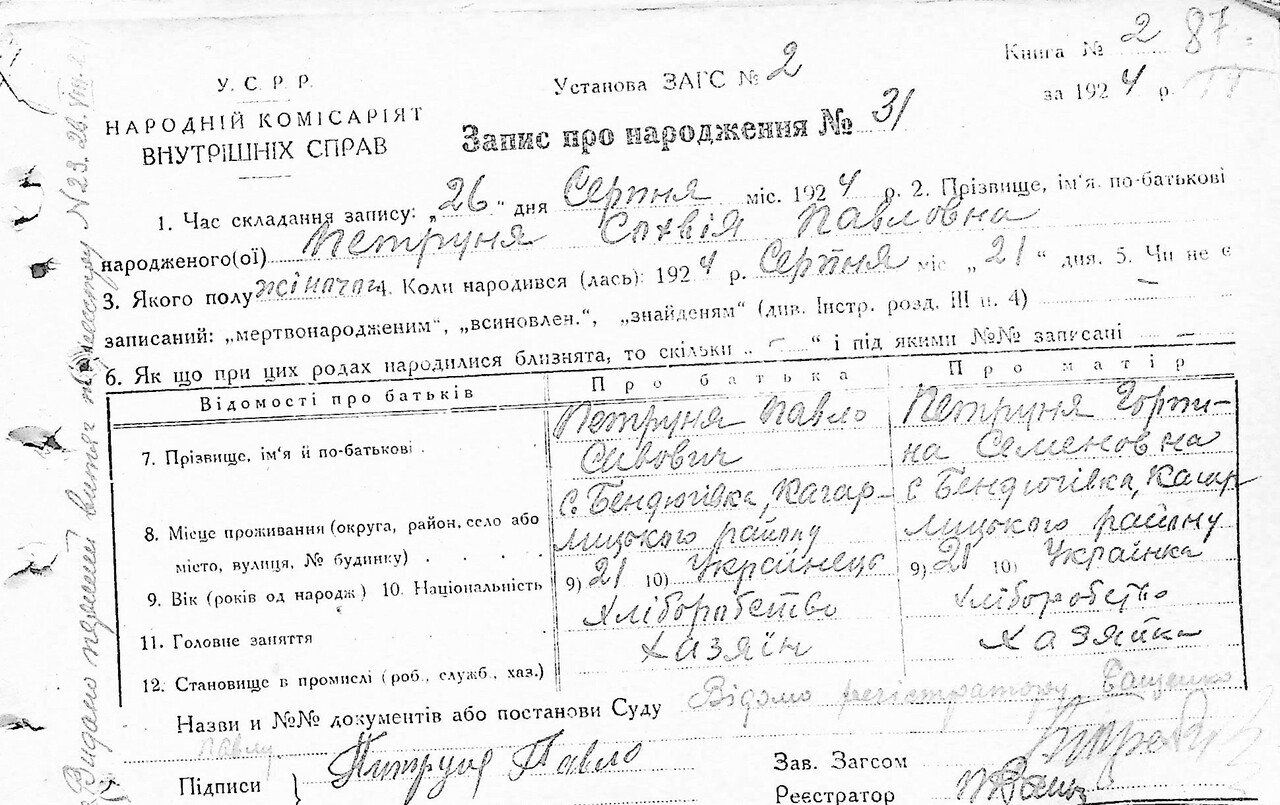 Книга № 2 87
У.С.Р.Р. Установа ЗАГС № 2
за 1924 р.
НАРОДНІЙ КОМІСАРІЯТ
ВНУТРІШНІХ СПРАВ
Запис про народження № 31
1. Час складання запису: „26“ дня Серпня міс. 1924 р. 2. Прізвище, ім'я по-батькові
народженого(ої) Петруня Софія Павловна
3. Якого полу жіночаг 4. Коли народився (лась): 1924 р. Серпня міс „21“ дня. 5. Чи не є
записаний: „мертвонародженим“, „всиновлен.“, „знайденям“ (див. Інстр. розд. III п. 4) —
6. Як що при цих родах народилися близнята, то скільки „ – “ і під якими №№ записані –
Відомості про батьків Про батька Про матір
7. Прізвище, ім'я й по-батькові Петруня Павло Савович Петруня Горпина Семеновна
8. Місце проживання (округа, район, село або с. Бендюгівка, Кагар- с. Бендюгівка, Кагар
місто, вулиця, № будинку) лицького району лицького району
9. Вік (років од народж) 10. Національність 9) 21 10) Українець 9) 21 10) Українка
11. Головне заняття Хліборобство Хліборобство
12. Становище в промислі (роб., служб., хаз.) Хазяїн Хазяйка
Назви и №№ документів або постанови Суду Відомо регістратору Бащенко
Павлу
Підписи } Петруня Павло Зав. Загсом
Реєстратор
Видано перший витяг по реєстру N 23. 28. VIII. 2